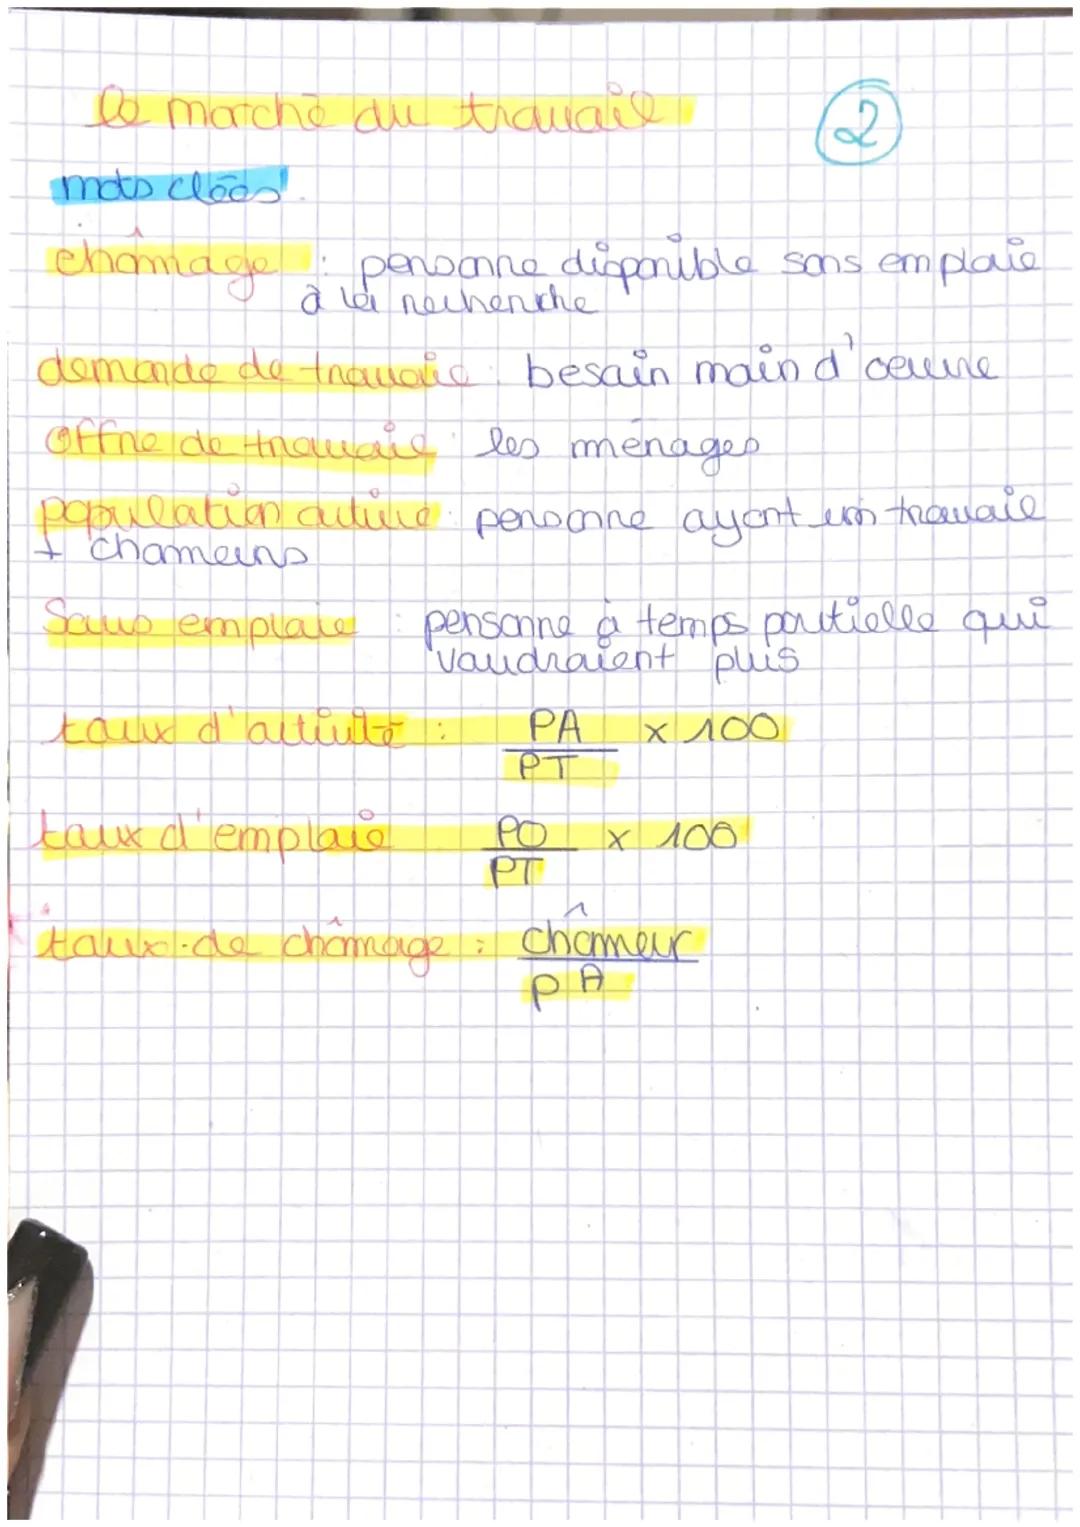 le marché du travail
2
mots clées
chômage : personne disponible sans emploie
à la recherche
demande de travaie : besoin main d'oeuvre
Offre de travaie : les ménages
population active : personne ayant un travaie
+ chomeurs
Sous emploie : personne à temps partielle qui
voudraient plus
taux d'activité : PA x 100
PT
taux d'emploie PO x 100
PT
taux de chômage : chômeur
PA